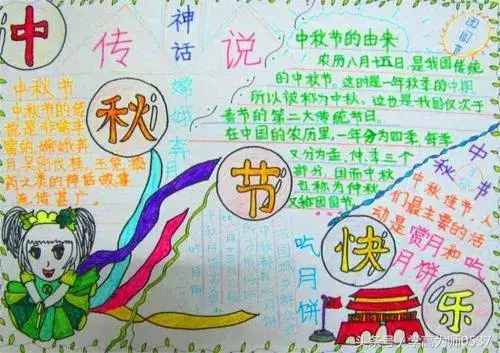 中
秋
节
快
乐
神话
传说
嫦娥奔月
中秋节
中秋节的传
说是非常丰
富的,嫦娥奔
月,吴刚伐桂,玉兔捣
药之类的神话故事
流传甚广。
中秋节的由来
农历八月十五日,是我国传统
的中秋节。这时是一年秋季的中期,
所以被称为中秋。这也是我国仅次于
春节的第二大传统节日。
在中国的农历里,一年分为四季,每季
又分为孟、仲、季三个
部分,因而中秋
也称为仲秋
又称团圆节。
团圆节
中秋节
中秋佳节,人
们最主要的活
动是赏月和吃
月饼
吃月饼
头条号/学高为师0537